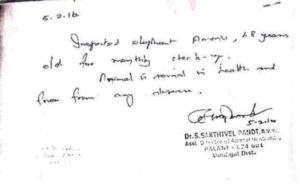 5.2.16
Inspected elephant , 68 years
old for monthly check-up.
Animal is normal in health and
free from any disease.
5.2.16
Dr.S.SAKTHIVEL PANDI, B.V.Sc.,
Asst. Director of Animal Husbandry
PALANI - 624 601
Dindigul Dist.